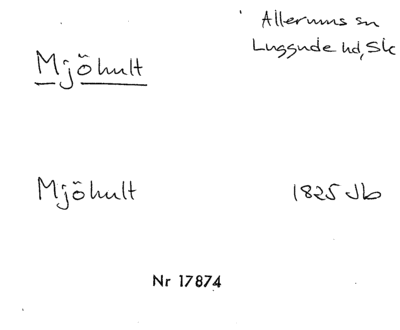 Allerums sn
Luggude hd, Sk
Mjöhult
Mjöhult 1825 Jb
Nr 17874